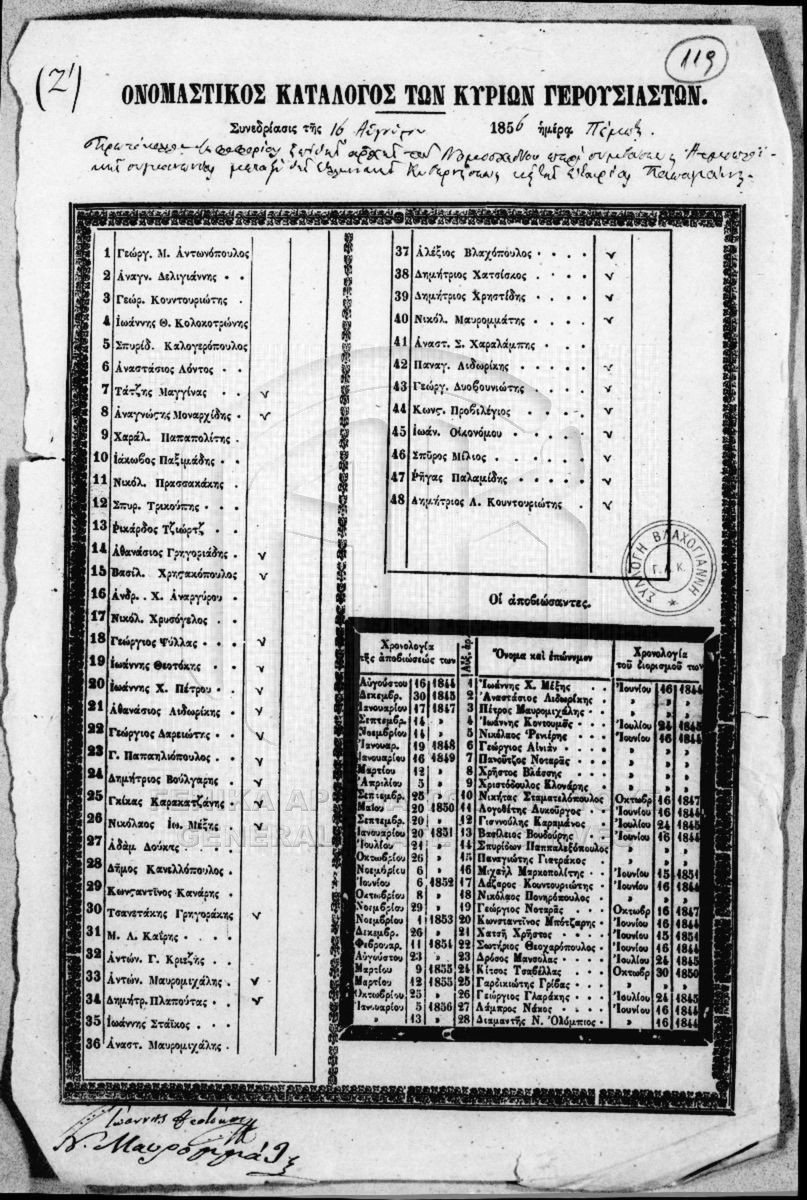 (Ζ')
119
ΟΝΟΜΑΣΤΙΚΟΣ ΚΑΤΑΛΟΓΟΣ ΤΩΝ ΚΥΡΙΩΝ ΓΕΡΟΥΣΙΑΣΤΩΝ.
Συνεδρίασις τῆς 16 1856 ἡμέρα
1 Γεώργ. Μ. Ἀντωνόπουλος
2 Ἀναγν. Δελιγιάννης
3 Γεώρ. Κουντουριώτης
4 Ἰωάννης Θ. Κολοκοτρώνης
5 Σπυρίδ. Καλογερόπουλος
6 Ἀναστάσιος Λόντος
7 Τάτζης Μαγγίνας ν
8 Ἀναγνώστης Μοναρχίδης ν
9 Χαράλ. Παπαπολίτης
10 Ἰάκωβος Παξιμάδης
11 Νικόλ. Πρασσακάκης
12 Σπυρ. Τρικούπης
13 Ῥικάρδος Τζιώρτζ
14 Ἀθανάσιος Γρηγοριάδης ν
15 Βασίλ. Χρηστακόπουλος ν
16 Ἀνδρ. Χ. Ἀναργύρου
17 Νικόλ. Χρυσόγελος
18 Γεώργιος Ψύλλας ν
19 Ἰωάννης Θεοτόκης ν
20 Ἰωάννης Χ. Πέτρου ν
21 Ἀθανάσιος Λιδωρίκης ν
22 Γεώργιος Δαρειώτης ν
23 Γ. Παπαηλιόπουλος ν
24 Δημήτριος Βούλγαρης ν
25 Γκίκας Καρακατζάνης ν
26 Νικόλαος Ἰω. Μέξης ν
27 Ἀδάμ Δούκας
28 Δῆμος Κανελλόπουλος
29 Κωνσταντῖνος Κανάρης
30 Τσανετάκης Γρηγοράκης ν
31 Μ. Λ. Καΐρης
32 Ἀντών. Γ. Κριεζῆς
33 Ἀντών. Μαυρομιχάλης ν
34 Δημήτρ. Πλαπούτας ν
35 Ἰωάννης Στάϊκος
36 Ἀναστ. Μαυρομιχάλης
37 Ἀλέξιος Βλαχόπουλος ν
38 Δημήτριος Χατσίσκος ν
39 Δημήτριος Χρηστίδης ν
40 Νικόλ. Μαυρομμάτης ν
41 Ἀναστ. Σ. Χαραλάμπης
42 Παναγ. Λιδωρίκης ν
43 Γεώργ. Δυοβουνιώτης ν
44 Κωνς. Προβιλέγιος ν
45 Ἰωάν. Οἰκονόμου ν
46 Σπῦρος Μίλιος ν
47 Ῥήγας Παλαμίδης ν
48 Δημήτριος Λ. Κουντουριώτης ν
ΣΥΛΛΟΓΗ ΒΛΑΧΟΓΙΑΝΝΗ
Γ.Α.Κ.
Οἱ ἀποβιώσαντες.
Χρονολογία τῆς ἀποβιώσεώς των Αὔξ. ἀρ. Ὄνομα καὶ ἐπώνυμον Χρονολογία τοῦ διορισμοῦ των
Αὐγούστου 16 1844 1 Ἰωάννης Χ. Μέξης Ἰουνίου 16 1844
Δεκεμβρ. 30 1845 2 Ἀναστάσιος Λιδωρίκης » » »
Ἰανουαρίου 17 1847 3 Πέτρος Μαυρομιχάλης » » »
Σεπτεμβρ. 14 » 4 Ἰωάννης Κοντουμᾶς Ἰουλίου 24 1845
Νοεμβρίου 14 » 5 Νικόλαος Ῥενιέρης Ἰουνίου 16 1844
Ἰανουαρ. 19 1848 6 Γεώργιος Αἰνιάν » » »
Ἰανουαρίου 16 1849 7 Πανοῦτζος Νοταρᾶς » » »
Μαρτίου 12 » 8 Χρῆστος Βλάσσης » » »
Ἀπριλίου 5 » 9 Χριστόδουλος Κλονάρης » » »
Σεπτεμβρ. 25 » 10 Νικήτας Σταματελόπουλος Ὀκτωβρ 16 1847
Μαΐου 20 1850 11 Λογοθέτης Λυκοῦργος Ἰουνίου 16 1844
Σεπτεμβρ. 20 » 12 Γιαννούλης Καραμάνος Ἰουλίου 24 1845
Ἰανουαρίου 20 1851 13 Βασίλειος Βουδούρης Ἰουνίου 16 1844
Ἰουλίου 21 » 14 Σπυρίδων Παπκαλεξόπουλος » » »
Ὀκτωβρίου 26 » 15 Παναγιώτης Γιατράκος » » »
Νοεμβρίου 6 » 16 Μιχαὴλ Μαρκοπολίτης Ἰουνίου 15 1851
Ἰουνίου 6 1852 17 Λάζαρος Κουντουριώτης Ἰουνίου 16 1844
Ὀκτωβρίου 8 » 18 Νικόλαος Πονηρόπουλος » » »
Νοεμβρίου 29 » 19 Γεώργιος Νοταρᾶς Ὀκτωβρ 16 1847
Νοεμβρίου 1 1853 20 Κωνσταντῖνος Μπότζαρης Ἰουνίου 16 1844
Δεκεμβρ. 26 » 21 Χατσῆ Χρῆστος Ἰουνίου 15 1851
Φεβρουαρ. 11 1854 22 Σωτήριος Θεοχαρόπουλος Ἰουνίου 16 1844
Αὐγούστου 23 » 23 Δρόσος Μανσόλας Ἰουλίου 24 1845
Μαρτίου 9 1855 24 Κίτσος Τσαβέλλας Ὀκτωβρ 30 1850
Μαρτίου 12 1855 25 Γαρδικιώτης Γρίβας » 16 1844
Ὀκτωβρίου 25 » 26 Γεώργιος Γλαράκης Ἰουλίου 24 1845
Ἰανουαρίου 5 1856 27 Λάμπρος Νάκος Ἰουνίου 16 1844
» 13 » 28 Διαμαντῆς Ν. Ὀλύμπιος » 16 1844
Ἰωάννης Θεοτόκης
Ν. Μαυρομμάτης